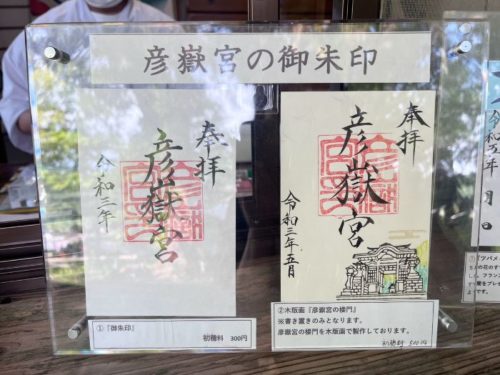 彦嶽宮の御朱印
奉拝
彦嶽宮
令和三年
①『御朱印』
初穂料 300円
奉拝
彦嶽宮
令和三年五月
②木版画『彦嶽宮の楼門』
※書き置きのみとなります。
彦嶽宮の楼門を木版画で製作しております。
初穂料 500円
令和五年
月
日
①『ツバメ